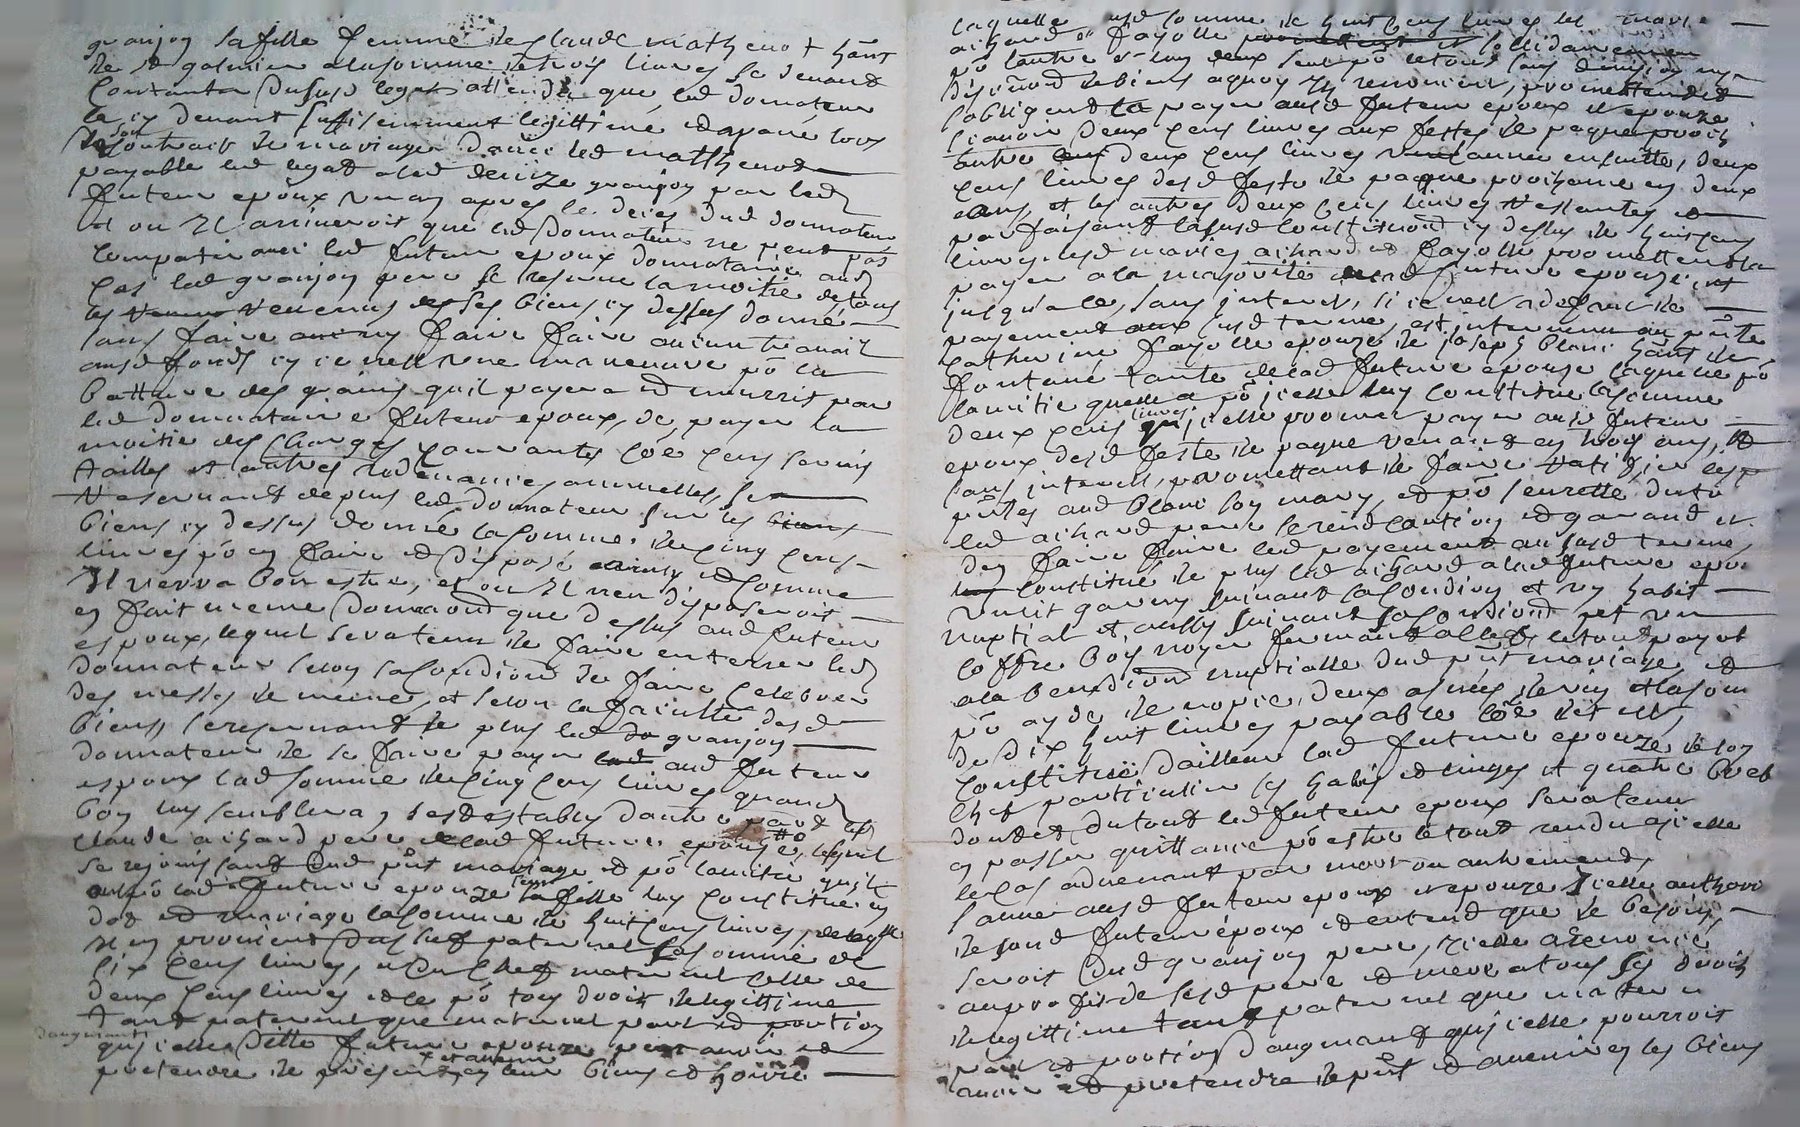 granjon sa fille femme de Claude mathenot hãnt
de st galmier a la somme de trois livres se devant
contanter du susd legat attendu que led donnateur
la cy devant suffisemment legittimé et apané lors
de son contrait de mariage avec led mathenod
payable led legat a lad denize granjon par led
futeur epoux un an apres le deces dud donnateur
et ou il arriveroit que led donnateur ne peut pas
compatir avec led futeur epoux donnataire aud
cas led granjon pere se reserve la moitié de tous
les revenus de ses biens cy dessus donné
sans faire ny faire faire aucun travail
ausd fonds cy ce nest une manoeuvre põ la
batture des grains quil payera et nourrir par
led donnataire futeur epoux, de payer la
moitié des charges courrantes cõe cens servis
tailles et autres redevances annuelles, se
reservant de plus led donnateur sur les biens
biens cy dessus donné la somme de cinq cens
livres põ en faire et disposé ainsy et comme
il verra bon estre, et ou il nen disposeroit
en fait meme donnaõn que dessus aud futeur
espoux, lequel sera tenu de faire enterrer led
donnateur selon sa condiõn de faire celebrer
des messes de meme, et selon la faculté desd
biens, se reservant de plus led granjon
donnateur de se faire payer aud futeur
espoux lad somme de cinq cens livres quand
bon luy semblera, sest establÿ
claude achard pere de lad future epouze, lequel
se rejouissant dud pñt mariage et põ lamitié quil
a põ lad future epouze sa fille luy constitue en
dot et mariage la somme de huit cens livres,
il en provient du chef paternel la somme de
six cens livres, et du chef maternel celle de
deux cens livres et ce põ tous droits de legittime
tant paternel que maternel part et portion
d'augment
quicelle ditte future epouze peut avoir et
pretendre de present et avenir en leur biens et hoirie
laquelle susd somme de huit cens livres les mariés
achard et fayolle solidairement
lun põ lautre et lun deux seul põ le tout sans division ny
discution de biens a quoy ils renoncent, promettent et
sobligent la payer ausd futeur epoux et epouze
scavoir deux cens livres aux festes de paque proch
autre deux cens livres lannée ensuitte, deux
cens livres desd feste de paque prochaine en deux
ans, et les autres deux cens livres restantes et
parfaisant la susd constituõn cy dessus de huit cens
livres lesd mariés achard et fayolle promettent la
payer a la majorité de lad future epouze,
jusqu'a ce, sans interest, si ce nest a deffaut de
payement ausd terme, est intervenu au pñte
catherine fayolle epouze de joseph blanc hãnt de
fontane tante de lad future epouze laquelle põ
lamitié quelle a põ icelle luy constitue la somme
deux cens livres qu'icelle promet payer ausd futeur
epoux desd feste de paque venant en trois ans, et
sans interest, promettant de faire ratifier les
pñtes aud blanc son mary, et põ seurette dutõ
led achard pere se rend caution et garand et
den faire faire led payement ausd terme,
constitue de plus led achard a lad future epou
un lit garny suivant sa condiõn et un habit
nuptial et aussy suivant sa condiõn, plus un
coffre bois noyer fermant a clef, le tout payable
a la benediõn nuptialle dud pñt mariage, et
põ ayde de nopce, deux asnées de vin et la som
de dix huit livres payable cõe dessus,
constitue dailleur lad future epouze de son
chef particulier ses habits et linges et quatre breb
dont et du tout led futeur epoux sera tenu
en passer quittance põ estre le tout rendu a icelle
le cas advenant par mort ou autrement,
sauver ausd futeur epoux et epouze icelle authori
de sond futeur epoux et entend que de besoin
seroit dud granjon pere, icelle a renoncé
au proffit de sesd pere et mere a tous ses droits
de legittime tant paternel que maternel
part et portion d'augment qu'icelle pourroit
avoir et pretendre de pñt et avenir en les biens